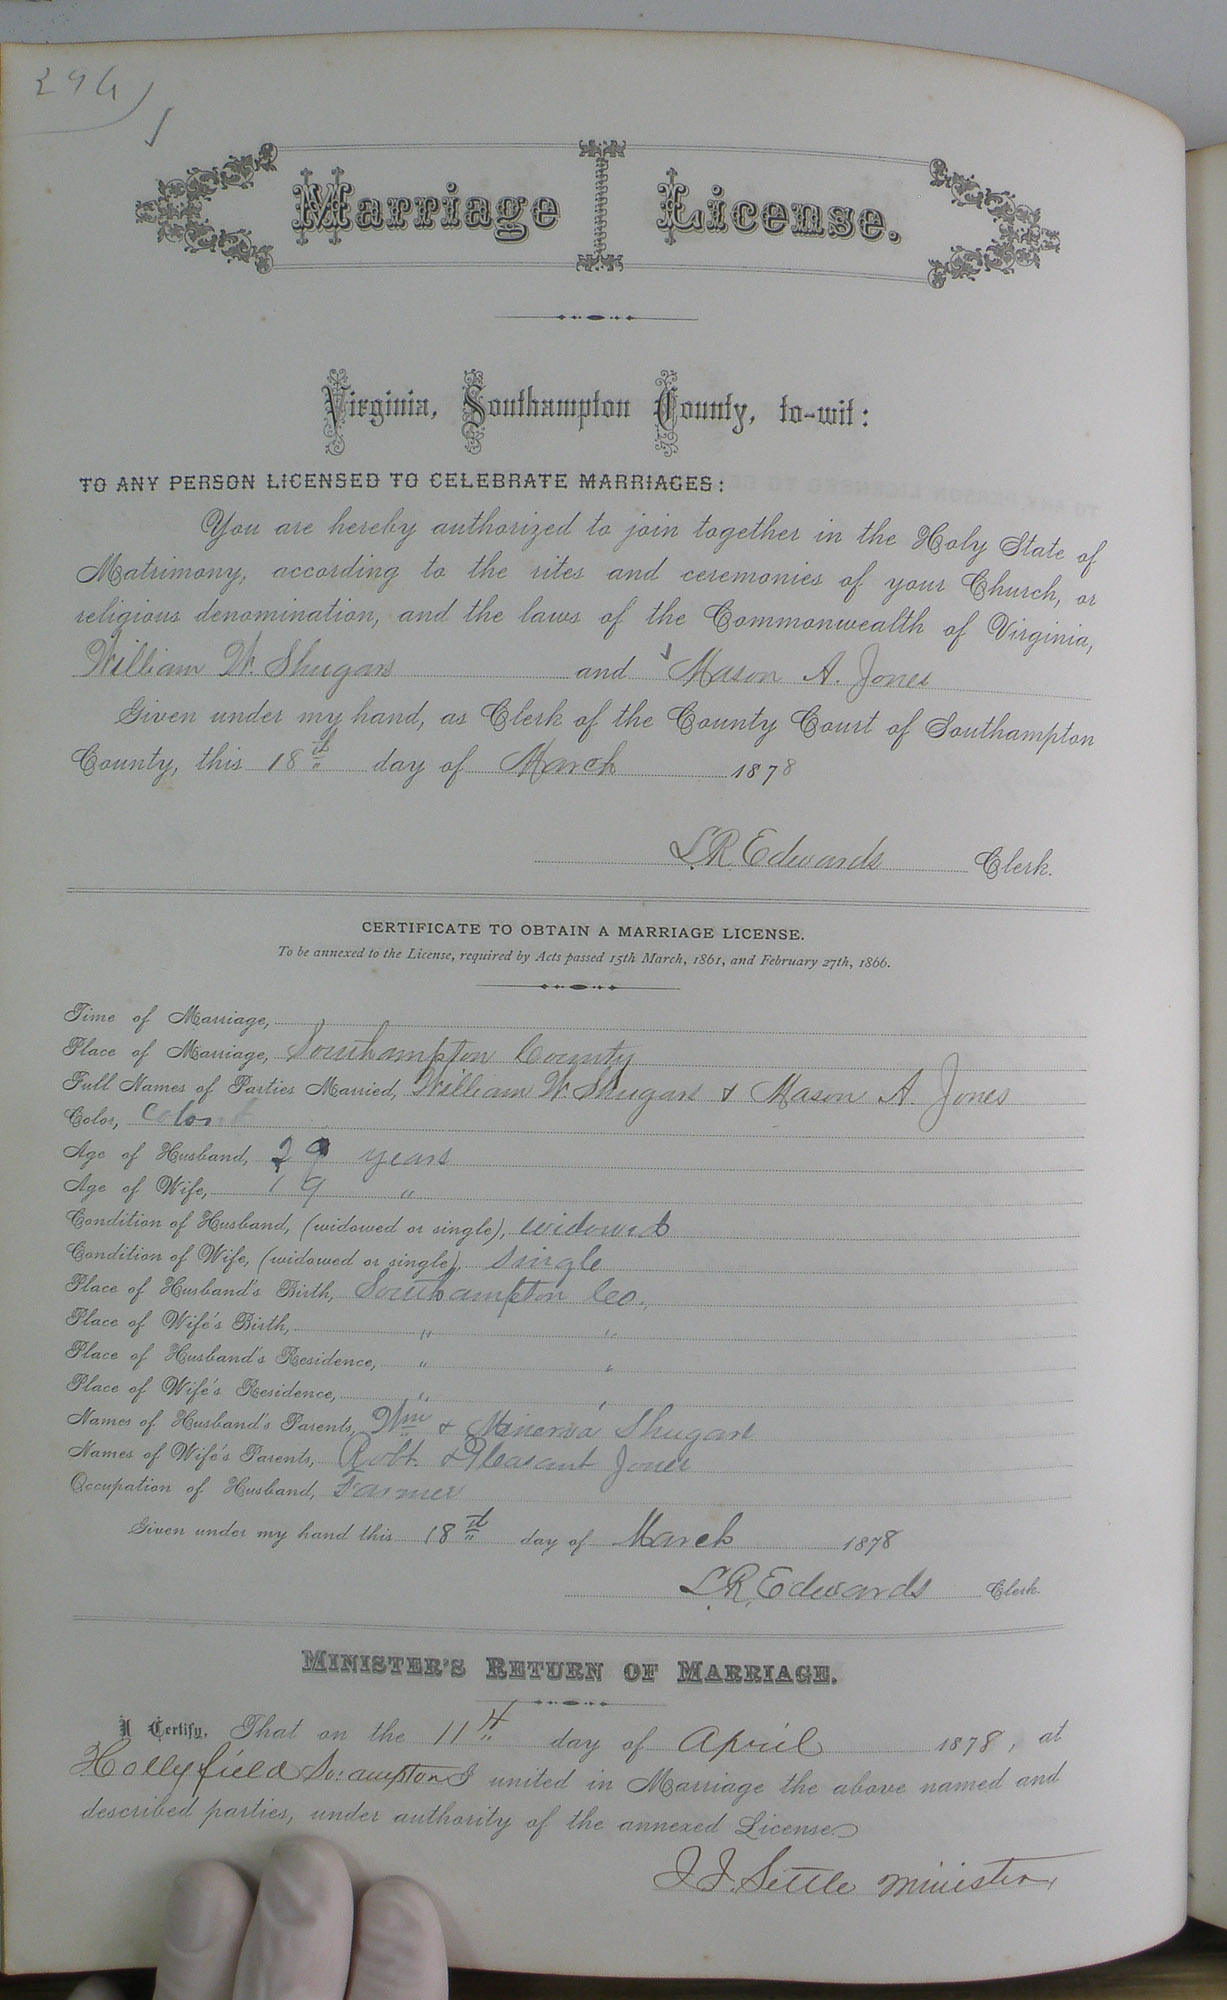 294)
Marriage License.
Virginia, Southampton County, to-wit:
TO ANY PERSON LICENSED TO CELEBRATE MARRIAGES:
You are hereby authorized to join together in the Holy State of
Matrimony, according to the rites and ceremonies of your Church, or
religious denomination, and the laws of the Commonwealth of Virginia,
William W. Shugars and Mason A. Jones
Given under my hand, as Clerk of the County Court of Southampton
County, this 18th day of March 1878
L. R. Edwards Clerk.
CERTIFICATE TO OBTAIN A MARRIAGE LICENSE.
To be annexed to the License, required by Acts passed 15th March, 1861, and February 27th, 1866.
Time of Marriage,
Place of Marriage, Southampton County
Full Names of Parties Married, William W. Shugars & Mason A. Jones
Color, Colord
Age of Husband, 29 years
Age of Wife, 19 "
Condition of Husband, (widowed or single), widowed
Condition of Wife, (widowed or single), single
Place of Husband's Birth, Southampton Co.,
Place of Wife's Birth, " "
Place of Husband's Residence, " "
Place of Wife's Residence, " "
Names of Husband's Parents, Wm & Minerva Shugars
Names of Wife's Parents, Robt. & Pleasant Jones
Occupation of Husband, Farmer
Given under my hand this 18th day of March 1878
L. R. Edwards Clerk.
MINISTER'S RETURN OF MARRIAGE.
I Certify, That on the 11th day of April 1878, at
Hollyfield So: ampton I united in Marriage the above named and
described parties, under authority of the annexed License.
J. J. Settle minister